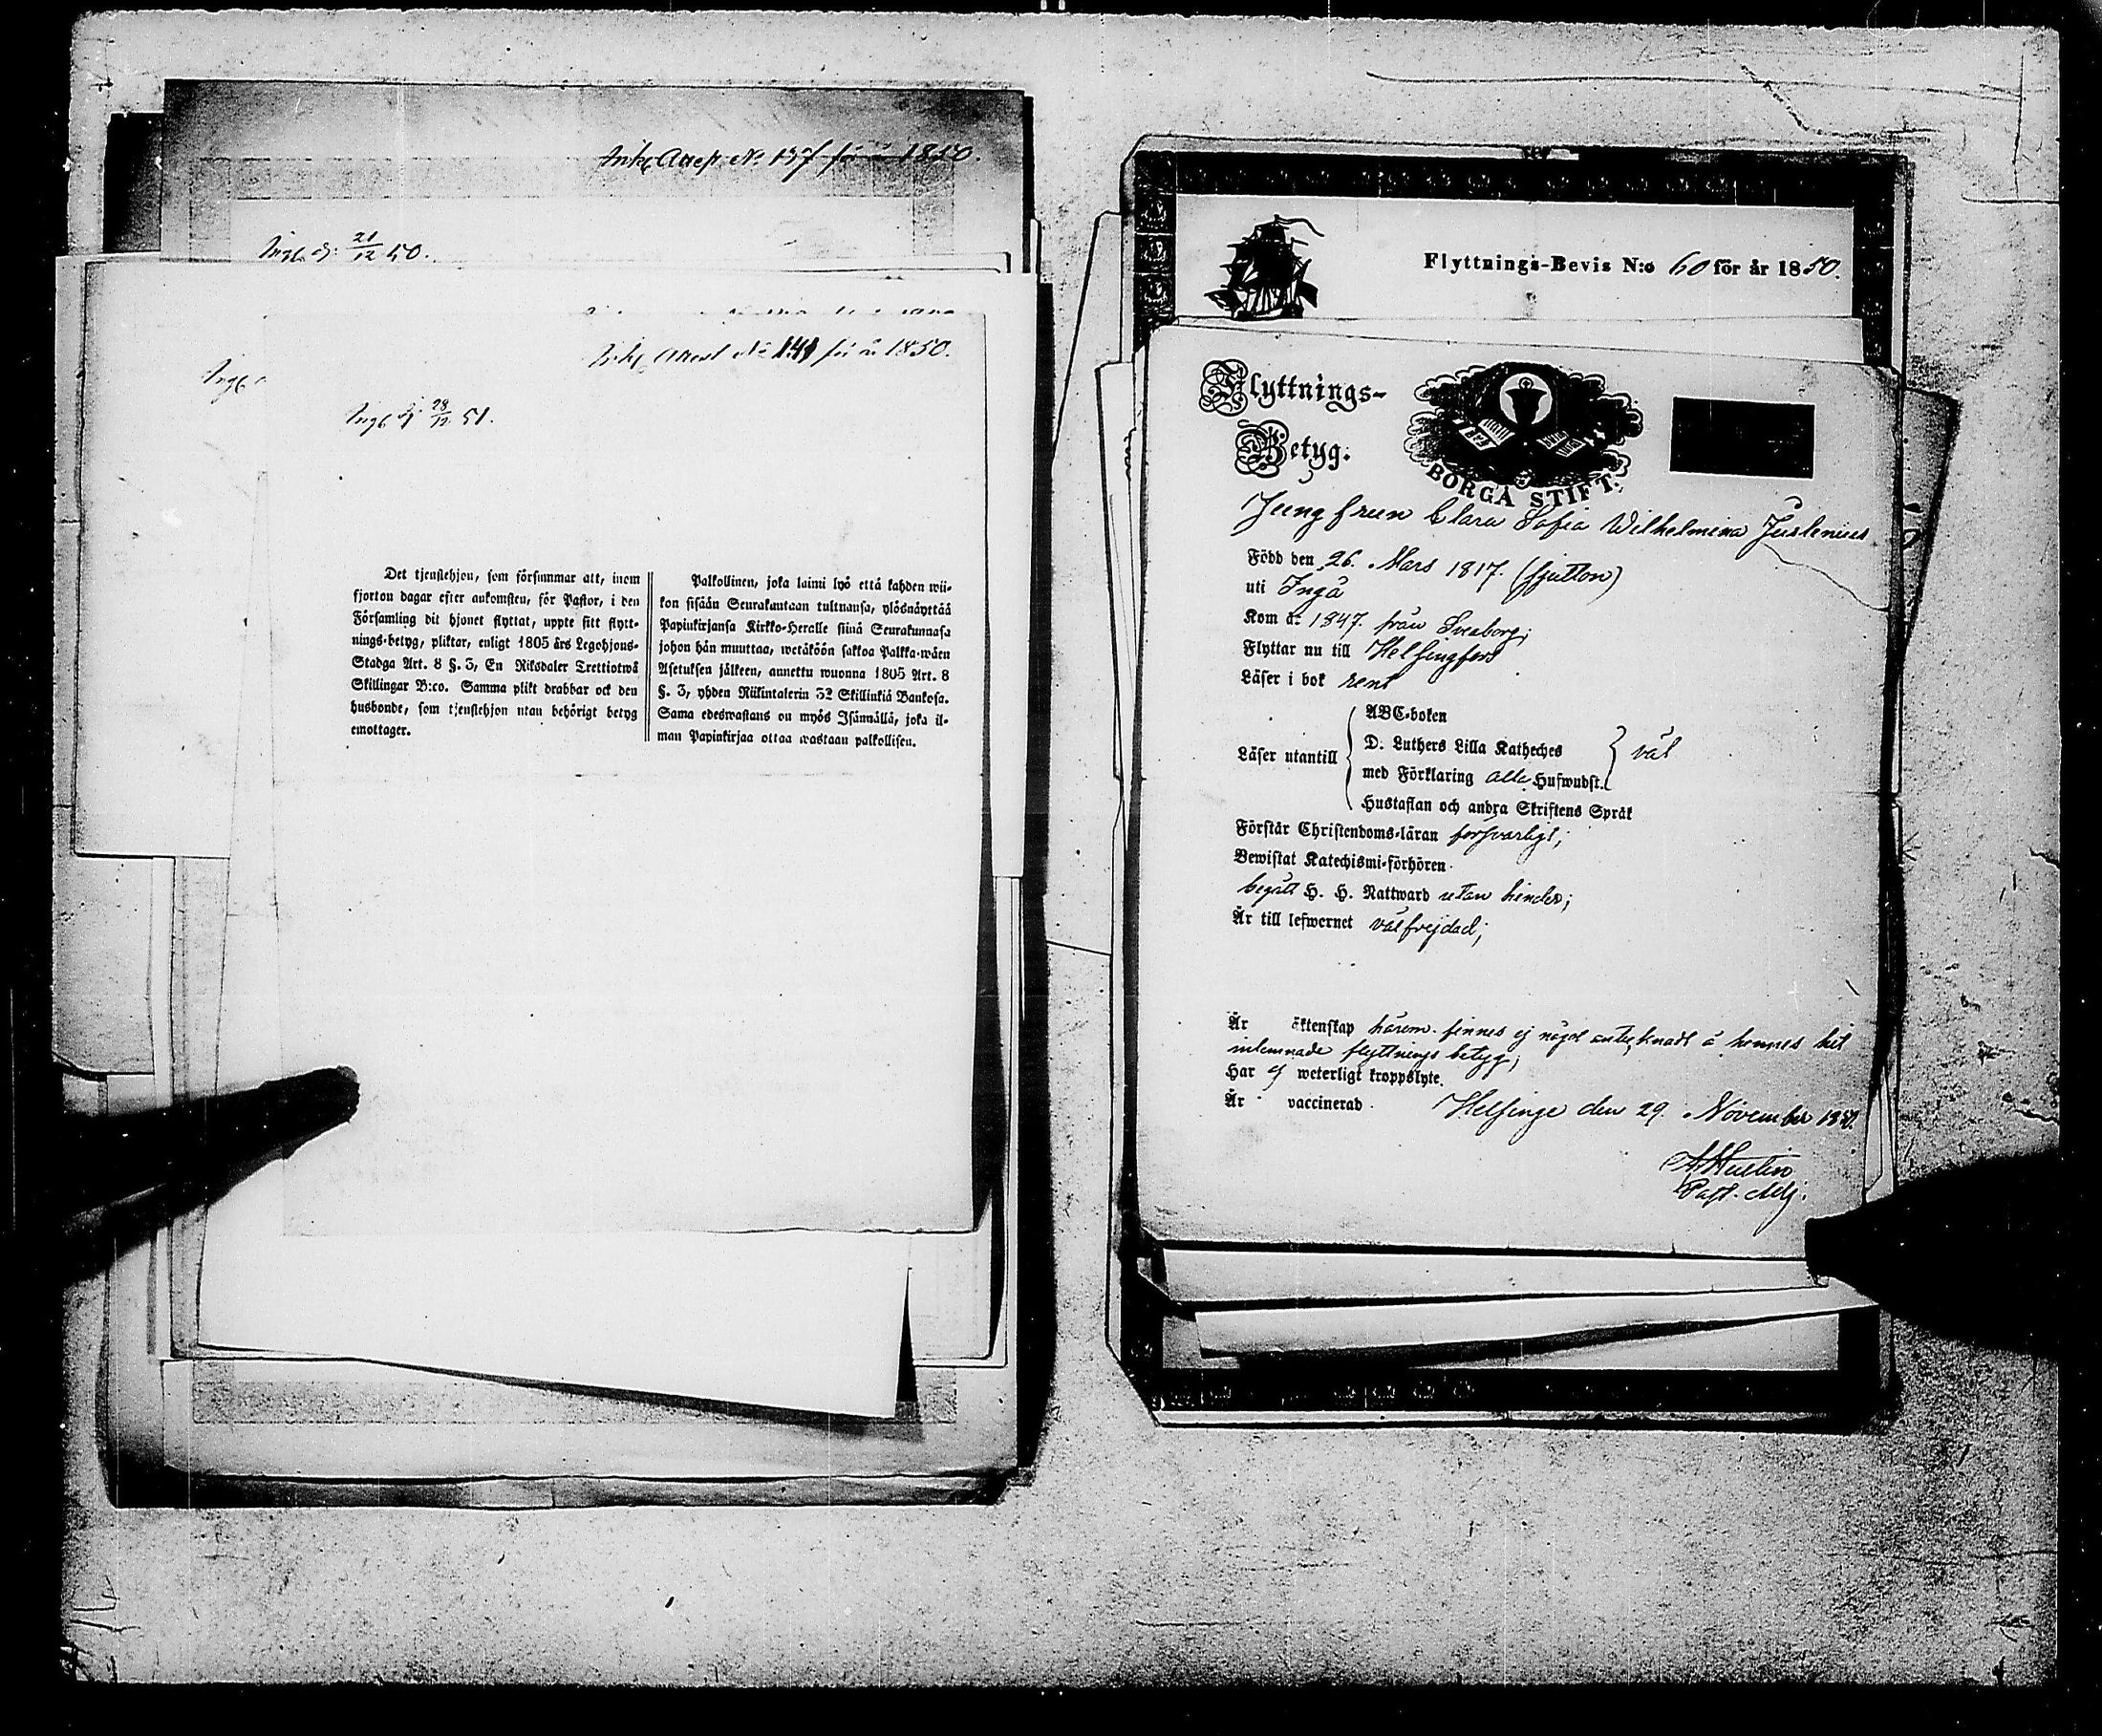 Ink. Attest No 137 för år 1850.
Ingb. d: 21/12 50.
Ink. Attest No 141 för år 1850.
Ingb
Ingb d: 28/12 51.
Det tjenstehjon, som försummar att, inom
fjorton dagar efter ankomsten, för Pastor, i den
Församling dit hjonet flyttat, uppte sitt flytt-
nings-betyg, pliktar, enligt 1805 års Legohjons-
Stadga Art. 8 §. 3, En Riksdaler Trettiotwå
Skillingar B:co. Samma plikt drabbar ock den
husbonde, som tjenstehjon utan behörigt betyg
emottager.
Palkollinen, joka laimi lyö että kahden wii-
kon sisään Seurakuntaan tultuansa, ylösnäyttää
Papinkirjansa Kirkko-Heralle siinä Seurakunnasa
johon hän muuttaa, wetäköön sakkoa Palkka-wäen
Asetuksen jälkeen, annettu wuonna 1805 Art. 8
§. 3, yhden Riikintalerin 32 Skillinkiä Bankosa.
Sama edeswastaus on myös Isännällä, joka il-
man Papinkirjaa ottaa wastaan palkollisen.
Flyttnings-Bevis N:o 60 för år 1850.
Flyttnings-
Betyg.
BORGÅ STIFT.
Jungfrun Clara Sofia Wilhelmina Juslenius
Född den 26. Mars 1817. (sjutton)
uti Ingå
Kom år 1847. från Sveaborg;
Flyttar nu till Helsingfors
Läser i bok rent
Läser utantill
ABC-boken
D. Luthers Lilla Katheches
med Förklaring alla Hufwudst.
väl
Hustaflan och andra Skriftens Språk
Förstår Christendoms-läran försvarligt;
Bewistat Katechismi-förhören
begått H. H. Nattward utan hinder;
Är till lefwernet välfrejdad;
Är äktenskap härom finnes ej något antecknadt å hennes hit
inlemnade flyttnings betyg;
Har ej weterligt kroppslyte.
Är vaccinerad. Helsinge den 29. November 1850.
Past. Adj.